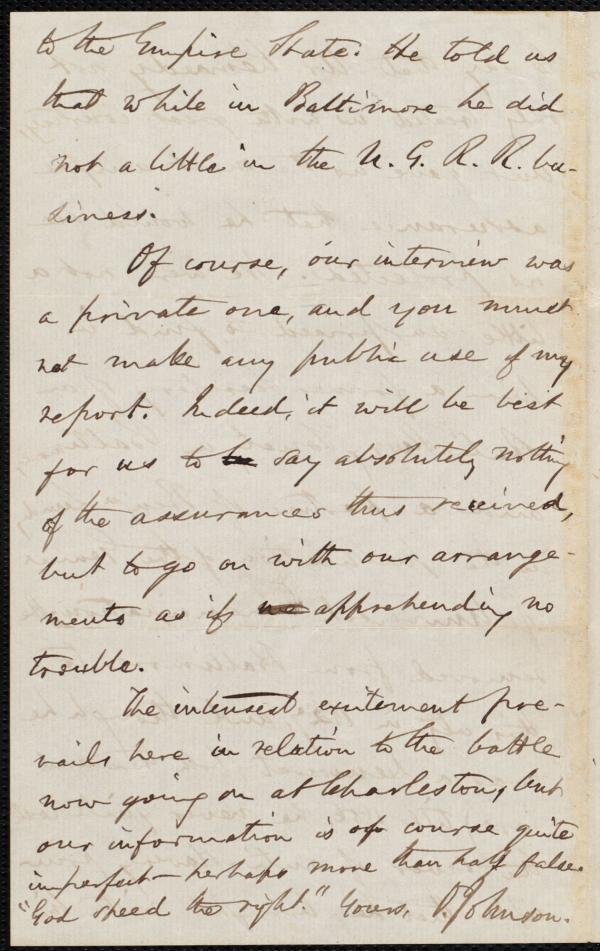 to the Empire State. He told us
that while in Baltimore he did
not a little in the U. G. R. R. bu-
siness.
Of course, our interview was
a private one, and you must
not make any public use of my
report. Indeed, it will be best
for us to say absolutely nothing
of the assurances thus received,
but to go on with our arrange-
ments as if apprehending no
trouble.
The intensest excitement pre-
vails here in relation to the battle
now going on at Charleston, but
our information is of course quite
imperfect—perhaps more than half false.
"God speed the right." Yours, O. Johnson.